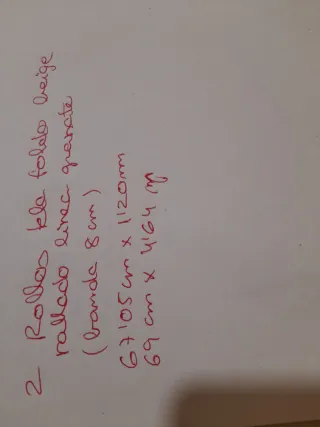 2 Rollos tela toldo beige
rallado linea granate
(banda 8 cm)
67'05 cm x 1'20 mm
69 cm x 4'64 m